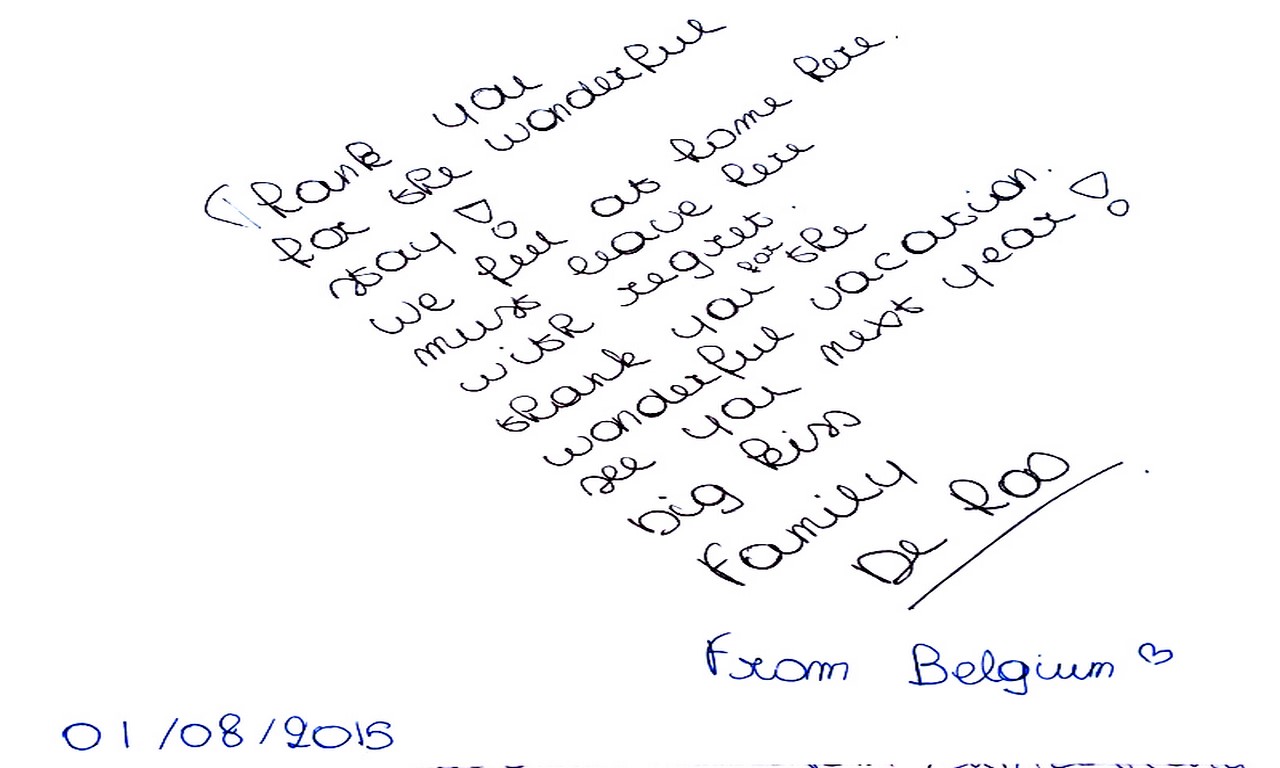 Thank you
for the wonderful
stay!
We feel at home here.
must leave here
with regret.
thank you for the
wonderful vacation.
see you next year!
big kiss
Family
De Roo
From Belgium
01/08/2015